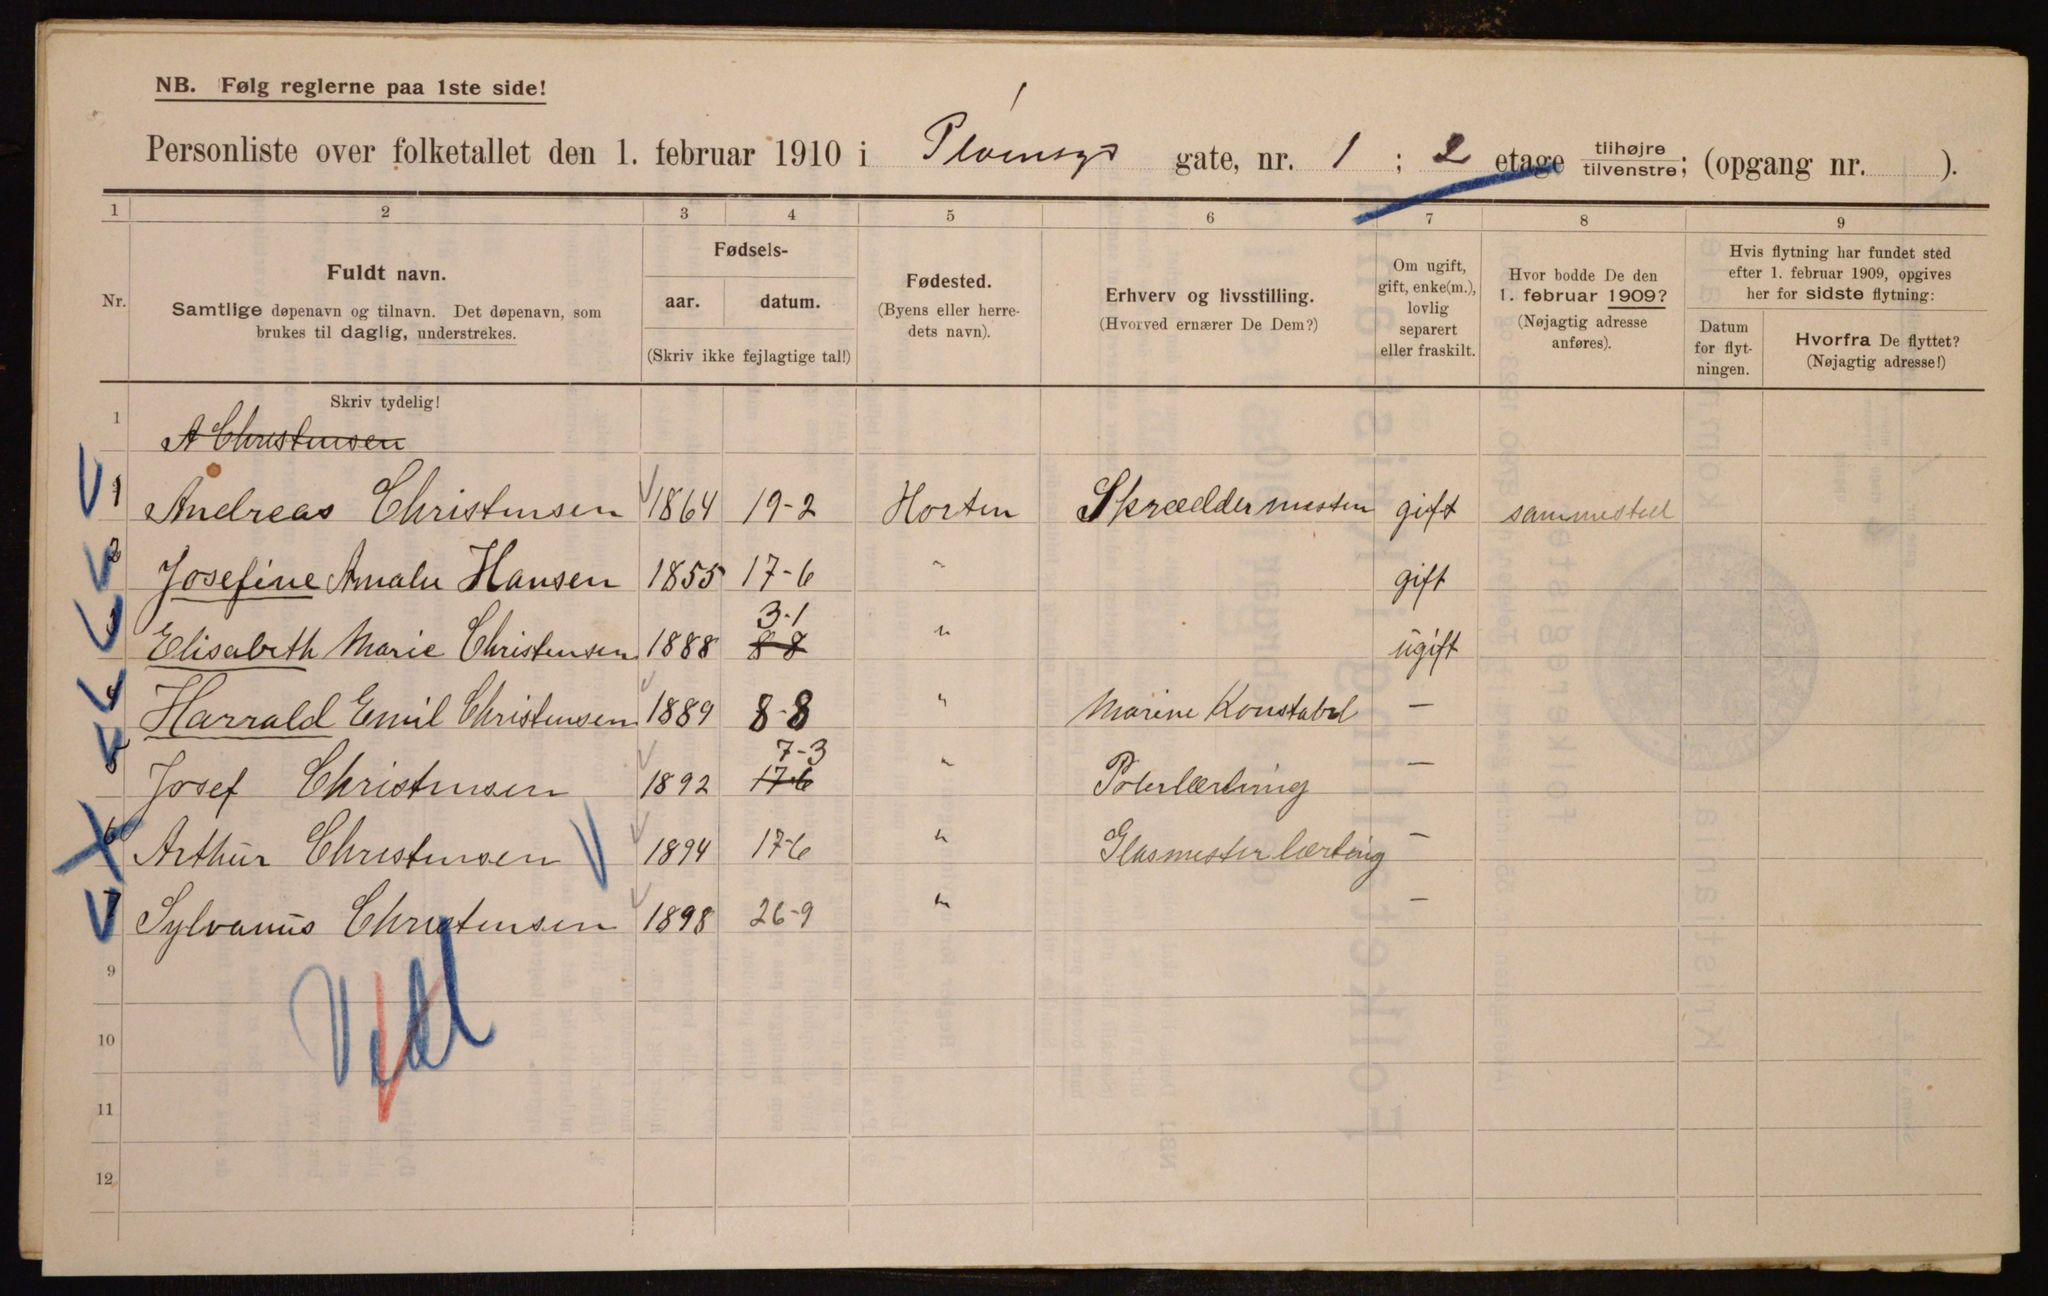 NB. Følg reglerne paa 1ste side!
Personliste over folketallet den 1. februar 1910 i Pløensgt gate, nr. 1 ; 2 etage tilhøjre tilvenstre; (opgang nr. ).
1 2 3 4 5 6 7 8 9
Nr.
Fuldt navn.
Samtlige døpenavn og tilnavn. Det døpenavn, som
brukes til daglig, understrekes.
Fødsels-
aar. datum.
(Skriv ikke fejlagtige tal!)
Fødested.
(Byens eller herre-
dets navn).
Erhverv og livsstilling.
(Hvorved ernærer De Dem?)
Om ugift,
gift, enke(m.),
lovlig
separert
eller fraskilt.
Hvor bodde De den
1. februar 1909?
(Nøjagtig adresse
anføres).
Hvis flytning har fundet sted
efter 1. februar 1909, opgives
her for sidste flytning:
Datum
for flyt-
ningen.
Hvorfra De flyttet?
(Nøjagtig adresse!)
Skriv tydelig!
1 A Christensen
1 Andreas Christensen 1864 19-2 Horten Skræddermester gift sammested
2 Josefine Amalie Hansen 1855 17-6 " gift
3-1
3 Elisabeth Marie Christensen 1888 8-8 " ugift
4 Harrald Emil Christensen 1889 8-8 " Marine Konstabel —
7-3
5 Josef Christensen 1892 17-6 " Polerlærling —
6 Arthur Christensen 1894 17-6 " Glasmester lærling —
7 Sylvanus Christensen 1898 26-9 " —
9
10
11
12